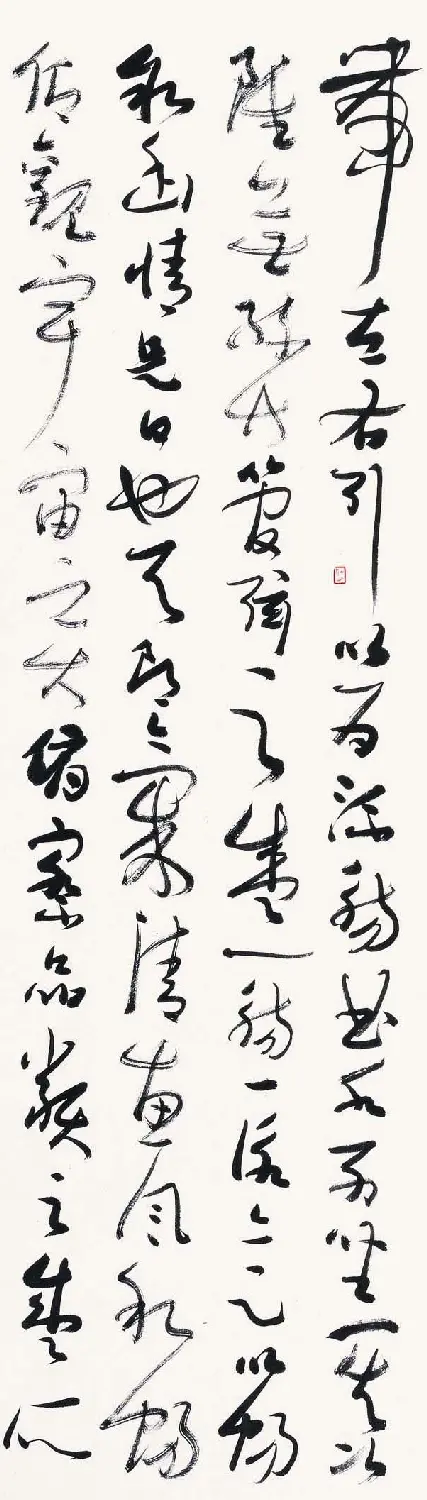 帶左右引以為流觴曲水列坐其次
雖無絲竹管弦之盛一觴一詠亦足以暢
敘幽情是日也天朗氣清惠風和暢
仰觀宇宙之大俯察品類之盛所